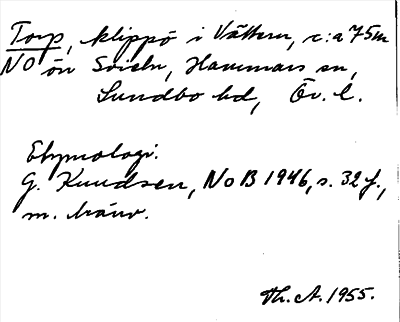 Torp, klippö i Vättern, c:a 75m
NO ön Svieln, Hammars sn,
Sundbo hd, Ör. l.
Etymologi.
G. Knudsen, NoB 1946, s. 32 f.,
m. hänv.
Th. A. 1955.